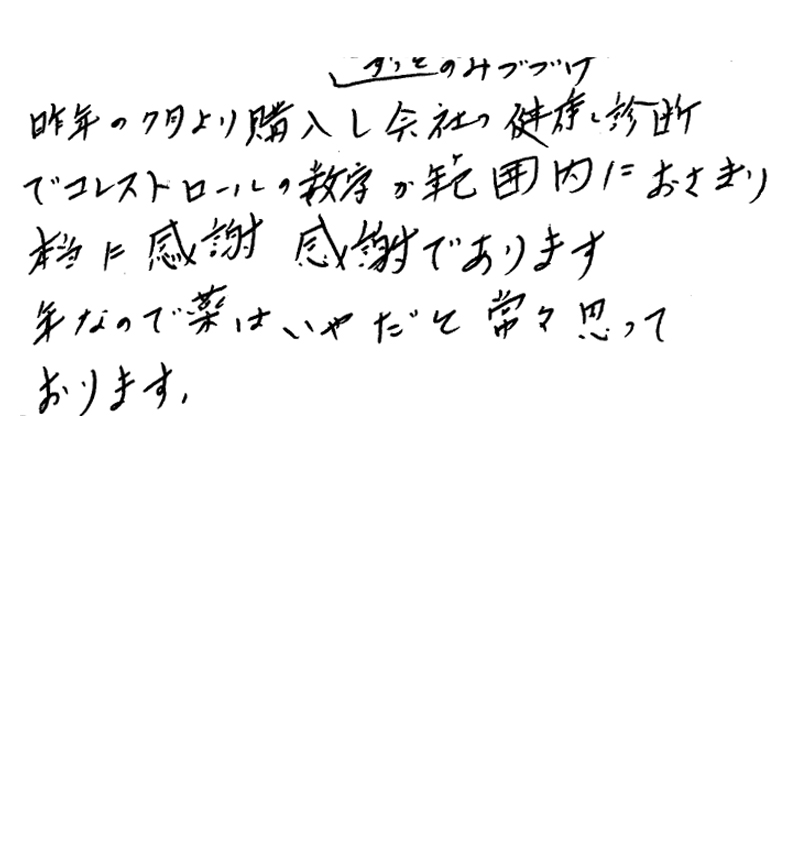 ずっとのみづづけ
昨年の7月より購入し会社の健康診断
でコレストロールの数字が範囲内におさまり
本当に感謝 感謝であります
年なので薬はいやだと常々思って
おります。